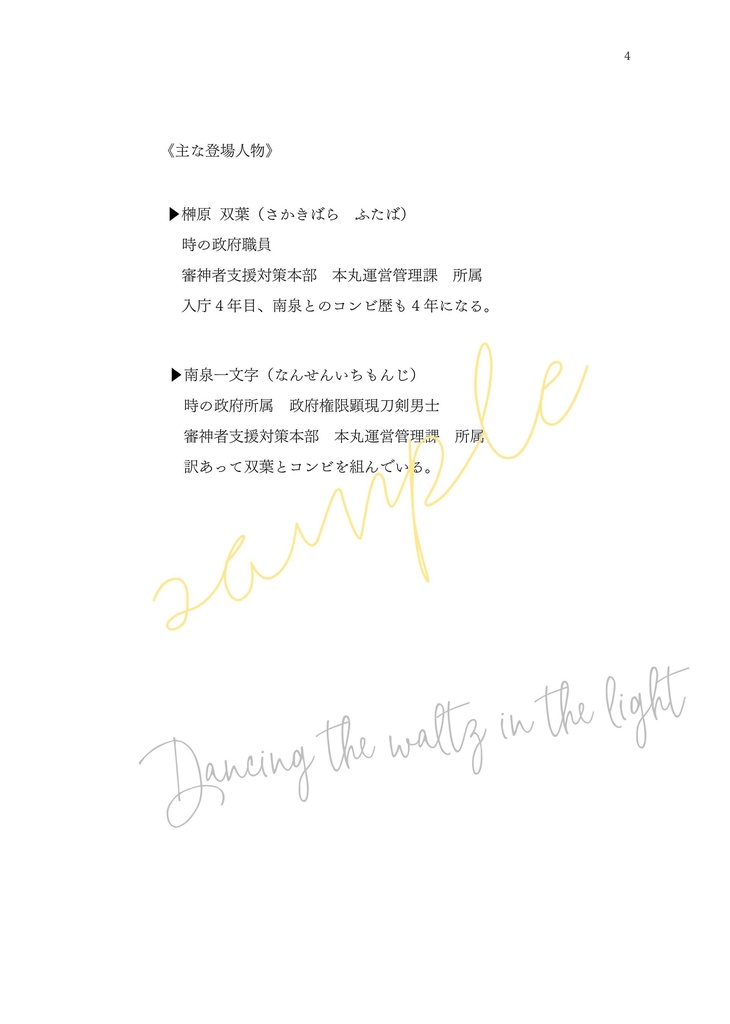 4
《主な登場人物》
▶榊原 双葉（さかきばら　ふたば）
時の政府職員
審神者支援対策本部　本丸運営管理課　所属
入庁４年目、南泉とのコンビ歴も４年になる。
▶南泉一文字（なんせんいちもんじ）
時の政府所属　政府権限顕現刀剣男士
審神者支援対策本部　本丸運営管理課　所属
訳あって双葉とコンビを組んでいる。
sample
Dancing the waltz in the light